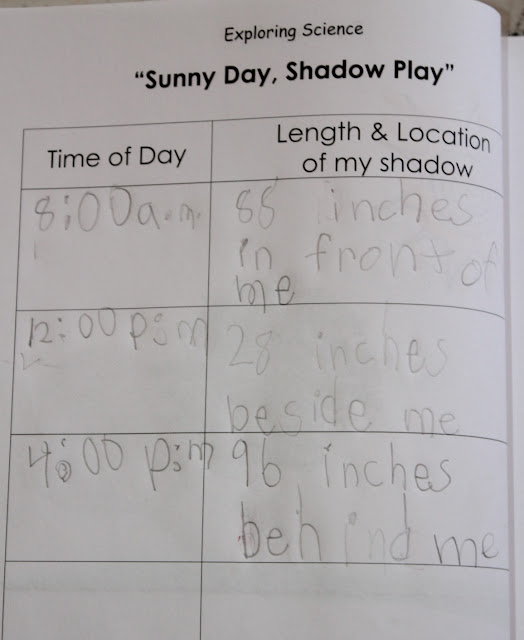 Exploring Science
"Sunny Day, Shadow Play"
Time of Day
Length & Location
of my shadow
8:00 a.m.
88 inches
in front of
me
12:00 p:m
28 inches
beside me
4:00 p:m
96 inches
behind me